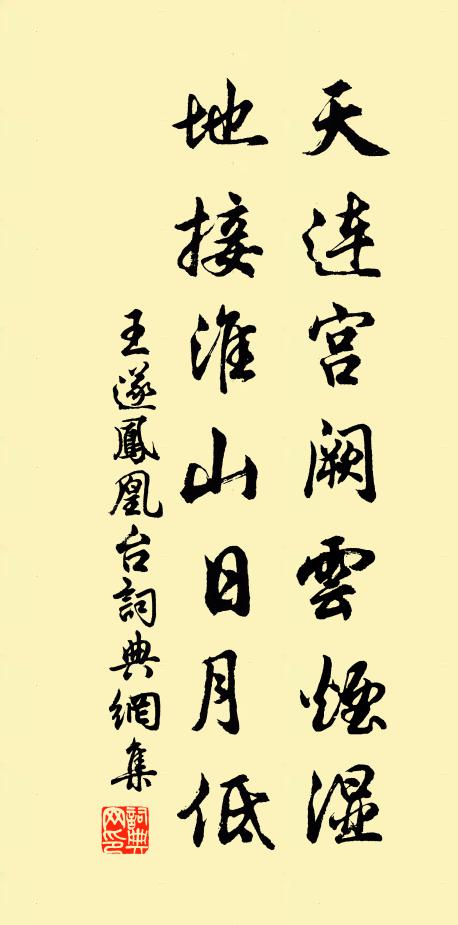 天連宫阙雲煙湿
地接淮山日月低
王遂鳳凰台詞典網集
詞典网印